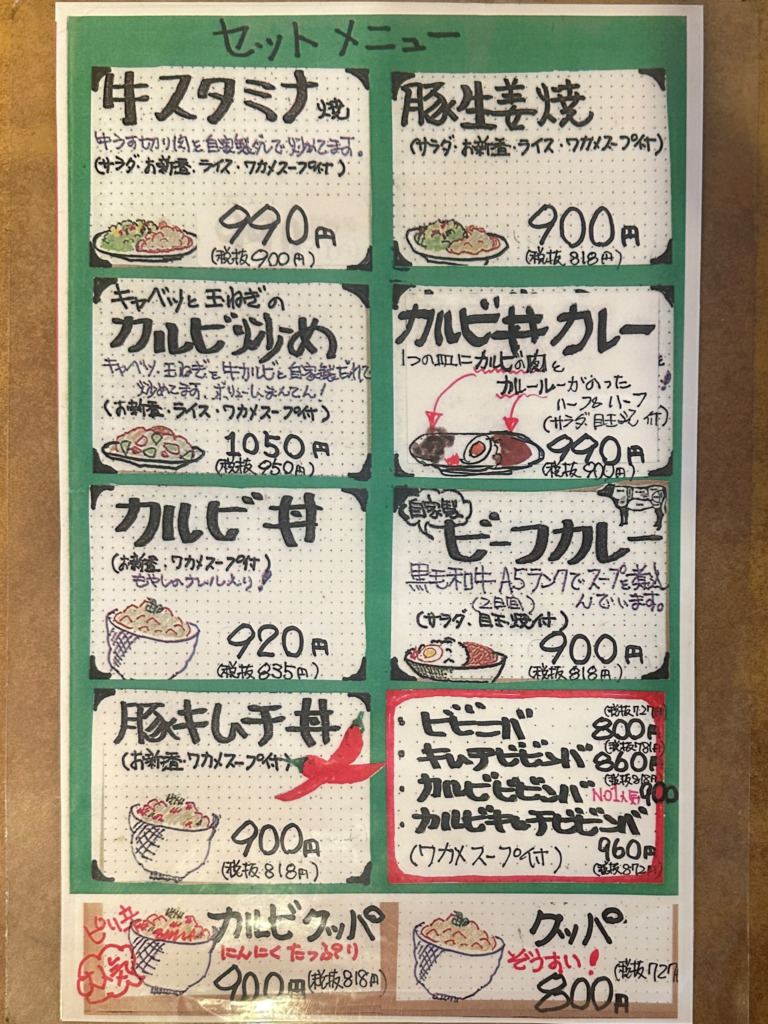 セットメニュー
牛スタミナ焼
牛うす切り肉を自家製ダレで炒めてます。
(サラダ・お新香・ライス・ワカメスープ付)
990円
(税抜900円)
豚生姜焼
(サラダ・お新香・ライス・ワカメスープ付)
900円
(税抜818円)
キャベツと玉ねぎの
カルビ炒め
キャベツ、玉ねぎと牛カルビを自家製だれで
炒めてます、ボリュームまんてん!
(お新香・ライス・ワカメスープ付)
1050円
(税抜950円)
カルビ丼カレー
1つの皿にカルビの肉と
カレールーがのった
ハーフ&ハーフ
(サラダ目玉 付)
990円
(税抜900円)
カルビ丼
(お新香・ワカメスープ付)
もやしのナムル入り!
920円
(税抜835円)
自家製
ビーフカレー
黒毛和牛A5ランクでスープを煮込
んでいます。
(2日間)
(サラダ・目玉焼付)
900円
(税抜818円)
豚キムチ丼
(お新香・ワカメスープ付)
900円
(税抜818円)
(税抜727円)
・ビビンバ 800円
(税抜781円)
・キムチビビンバ 860円
(税抜818円)
・カルビビビンバ No1人気 900
・カルビキムチビビンバ
(ワカメスープ付) 960円
(税抜872円)
ピリ辛
人気
カルビクッパ
にんにくたっぷり
900円(税抜818円)
クッパ
ぞうすい!
800円
(税抜727